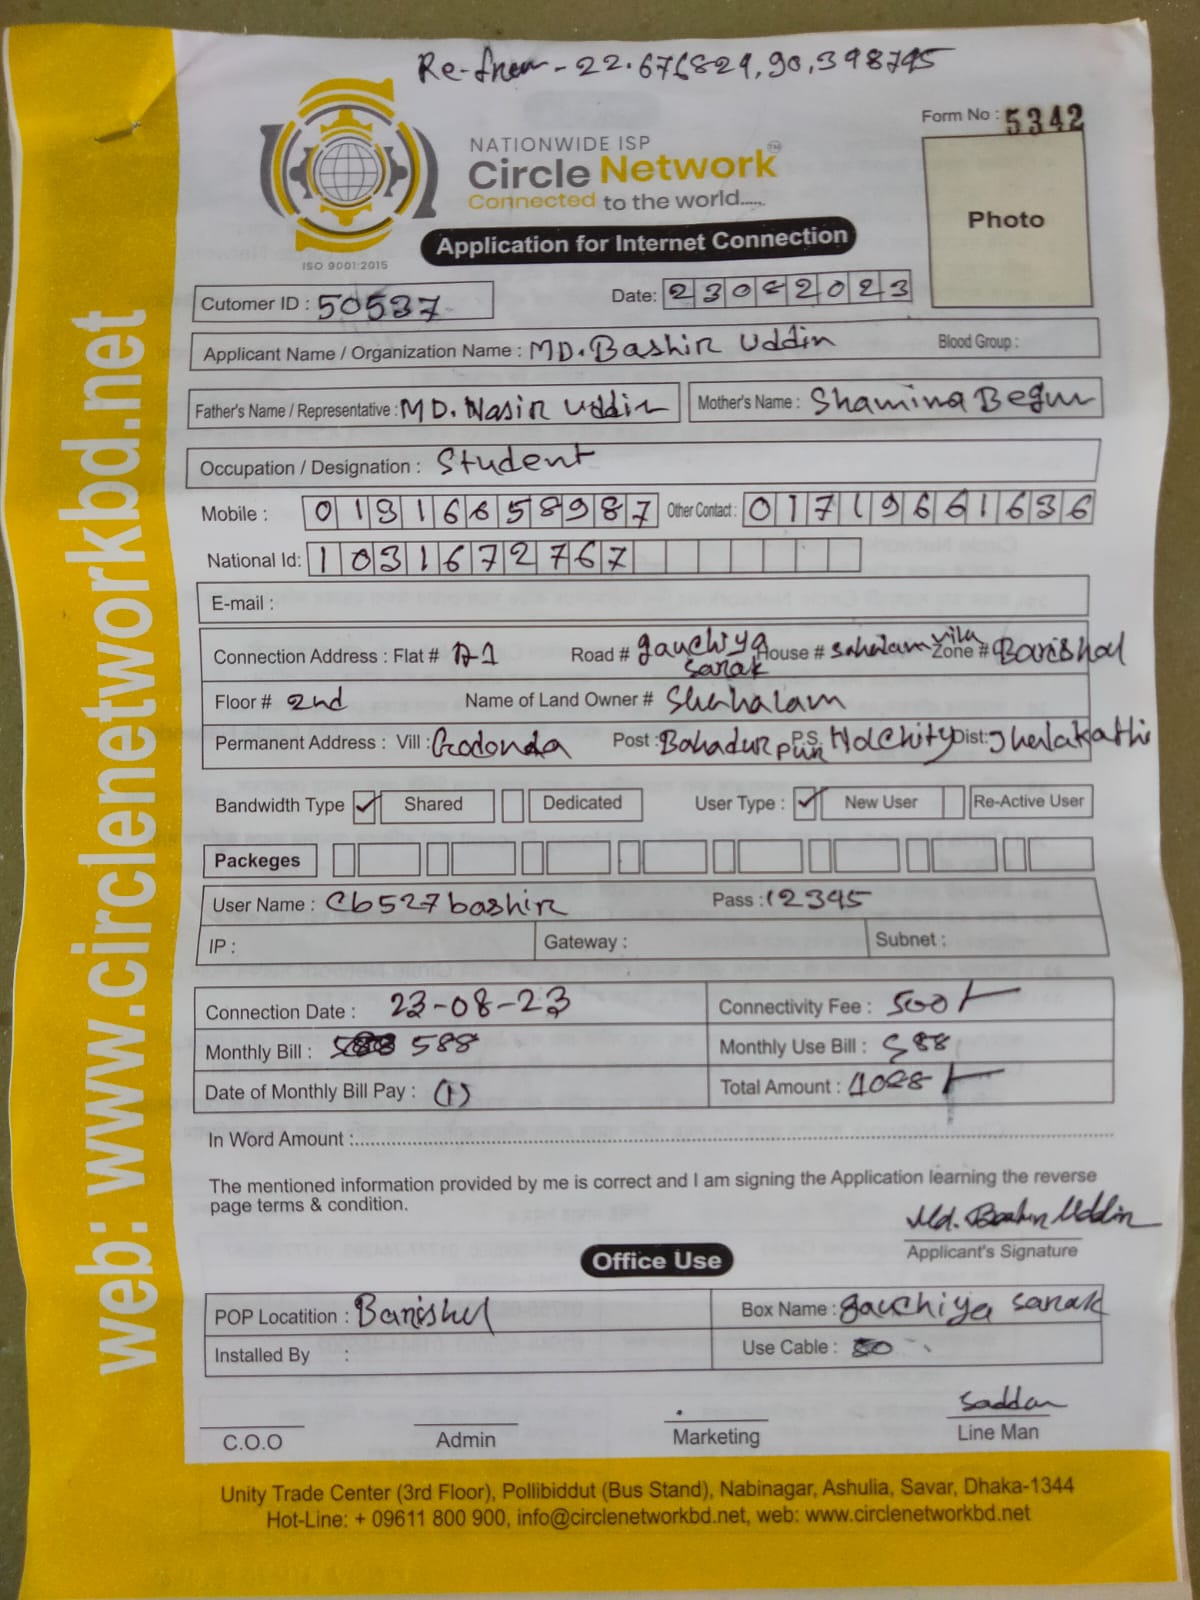 Re-fnew - 22.676829, 90.398795
Form No : 5342
NATIONWIDE ISP
Circle Network TM
Connected to the world.....
ISO 9001:2015
Application for Internet Connection
Photo
Cutomer ID : 50537
Date: 23082023
Applicant Name / Organization Name : MD. Bashir Uddin Blood Group :
Father's Name / Representative : MD. Nasir Uddin Mother's Name : Shamima Begum
Occupation / Designation : Student
Mobile : 01316658987 Other Contact : 01719661636
National Id: 1031672767
E-mail :
Connection Address : Flat # A-1 Road # gauchiya sarak House # sahalam vila Zone # Barishal
Floor # 2nd Name of Land Owner # Shahalam
Permanent Address : Vill : Godonda Post : Bahadurpur P.S. Nolchity Dist: Jhalakathi
Bandwidth Type ✓ Shared Dedicated User Type : ✓ New User Re-Active User
Packeges
User Name : Cb527bashir Pass : 12345
IP : Gateway : Subnet :
Connection Date : 23-08-23 Connectivity Fee : 500/-
Monthly Bill : 588 Monthly Use Bill : 588
Date of Monthly Bill Pay : (1) Total Amount : 1088/-
In Word Amount :
The mentioned information provided by me is correct and I am signing the Application learning the reverse
page terms & condition.
Md. Bashir Uddin
Applicant's Signature
Office Use
POP Locatition : Barishal Box Name : gauchiya sarak
Installed By : Use Cable : 80
Saddam
C.O.O Admin Marketing Line Man
Unity Trade Center (3rd Floor), Pollibiddut (Bus Stand), Nabinagar, Ashulia, Savar, Dhaka-1344
Hot-Line: + 09611 800 900, info@circlenetworkbd.net, web: www.circlenetworkbd.net
web: www.circlenetworkbd.net